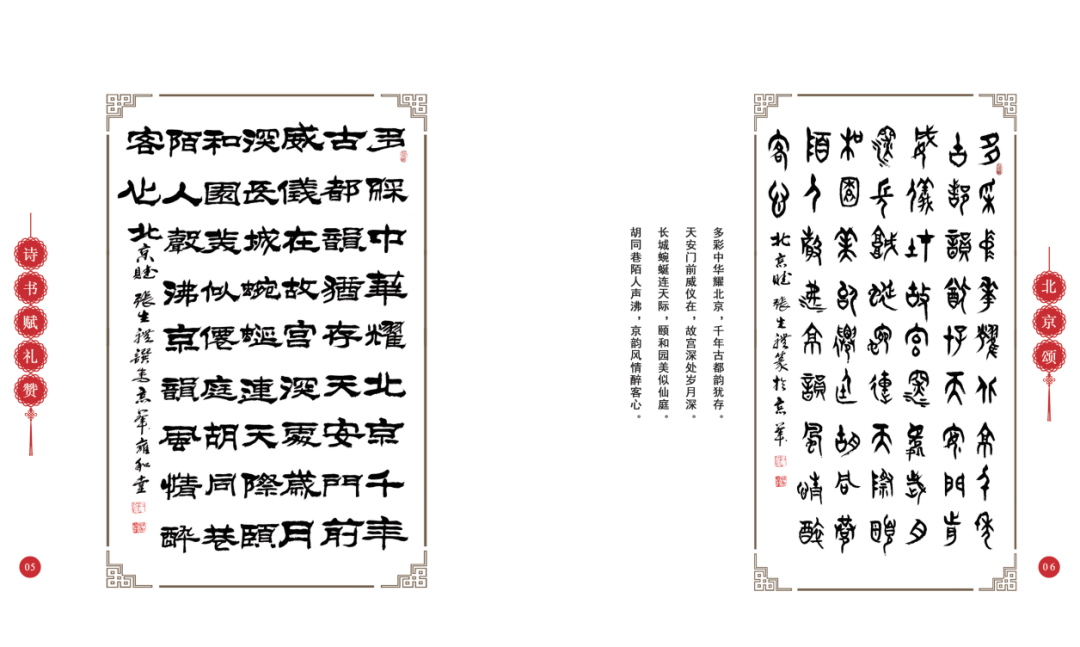 诗书赋礼赞
多綵中華耀北京千年
古都韻猶存天安門前
威儀在故宮深處歲月
深長城蜿蜒連天際頤
和園美似僊庭胡同巷
陌人聲沸京韻風情醉
客心
北京賦 張生禮撰書京華雍和堂
05
多彩中华耀北京，千年古都韵犹存。
天安门前威仪在，故宫深处岁月深。
长城蜿蜒连天际，颐和园美似仙庭。
胡同巷陌人声沸，京韵风情醉客心。
多采中華耀北京千年
古都韻猶存天安門前
威儀在故宮深處歲月
深長城蜿蜒連天際頤
和園美似僊庭胡同巷
陌人聲沸京韻風情醉
客心
北京賦 張生禮篆於京華
北京颂
06